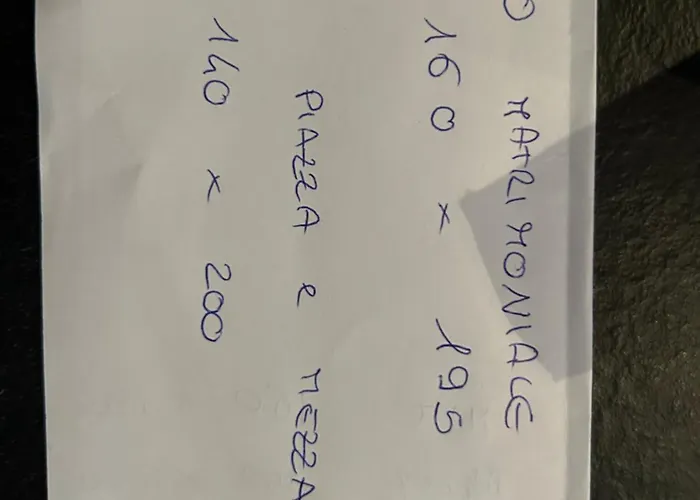 O MATRIMONIALE
160 x 195
PIAZZA e MEZZA
140 x 200